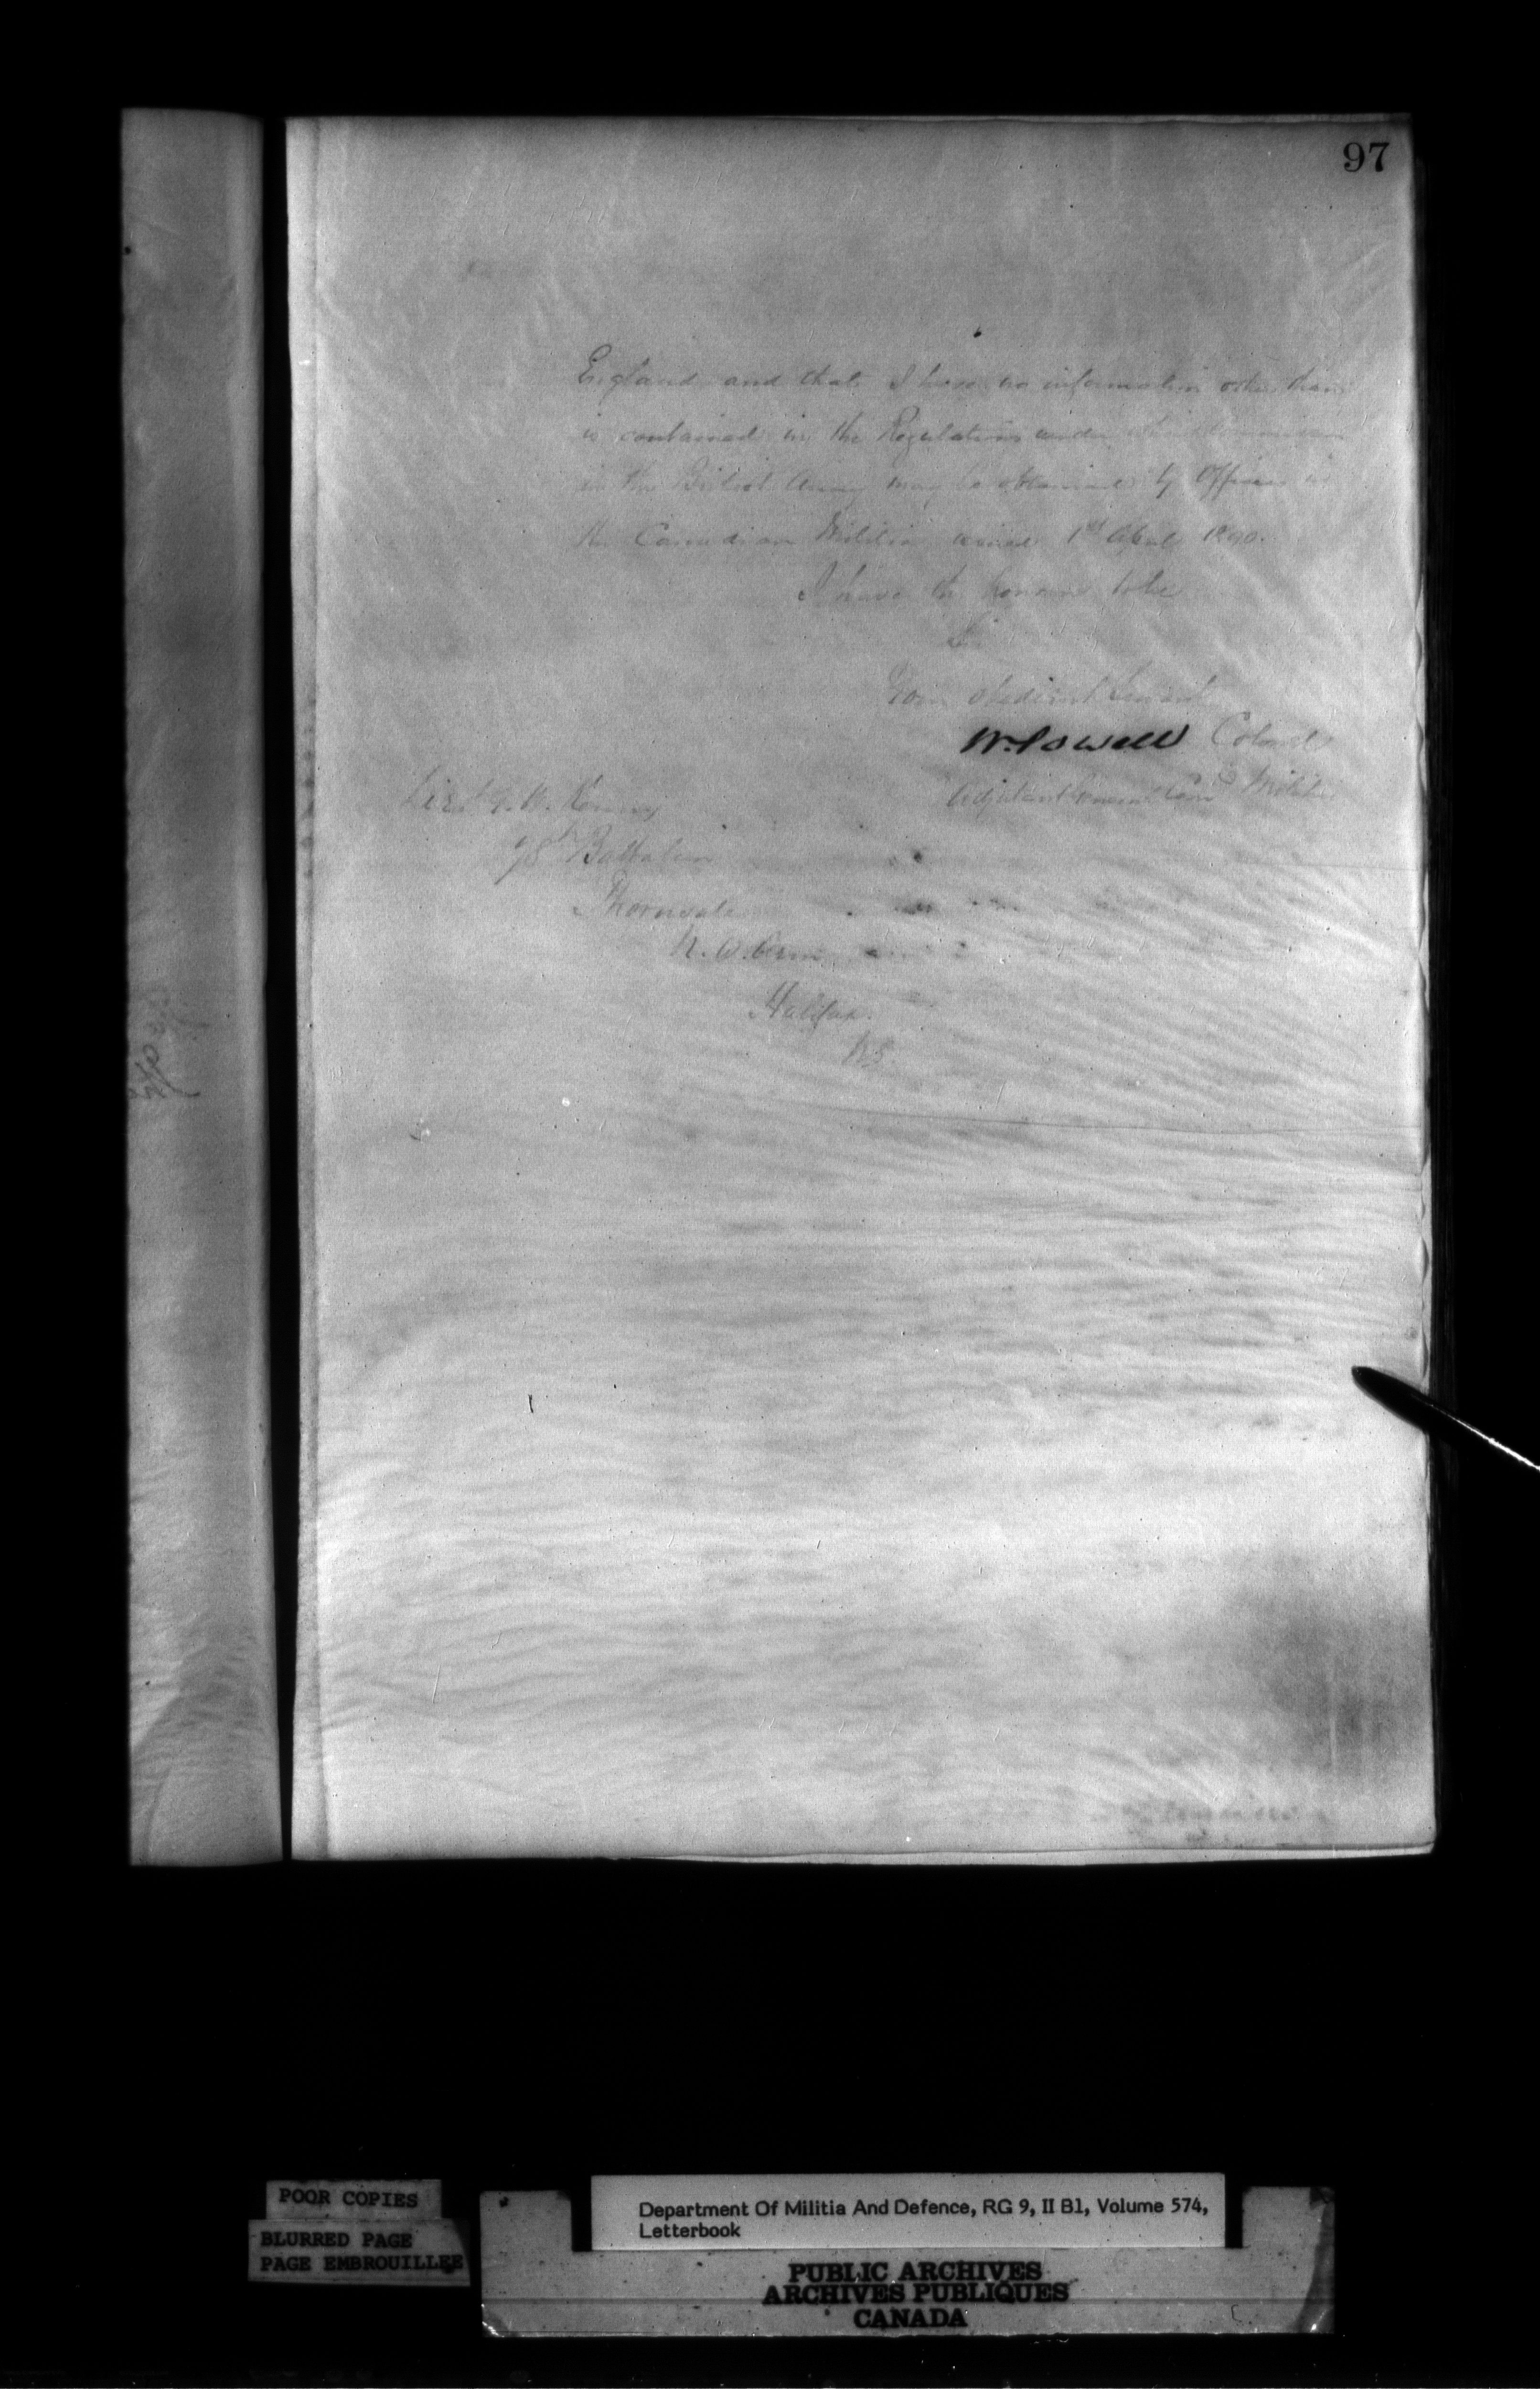 97
England and that I have no information other than
is contained in the Regulations under which Commissions
in the British Army may be obtained by Officers in
the Canadian Militia issued 1st April 1890.
I have the honour to be
Sir
Your obedient Servant
W. Powell Colonel
Adjutant General Can Militia
Lieut Kenny
78th Battalion
Thornvale
N.W. Arm
Halifax.
N.S.
POOR COPIES
BLURRED PAGE
PAGE EMBROUILLEE
Department Of Militia And Defence, RG 9, II B1, Volume 574,
Letterbook
PUBLIC ARCHIVES
ARCHIVES PUBLIQUES
CANADA